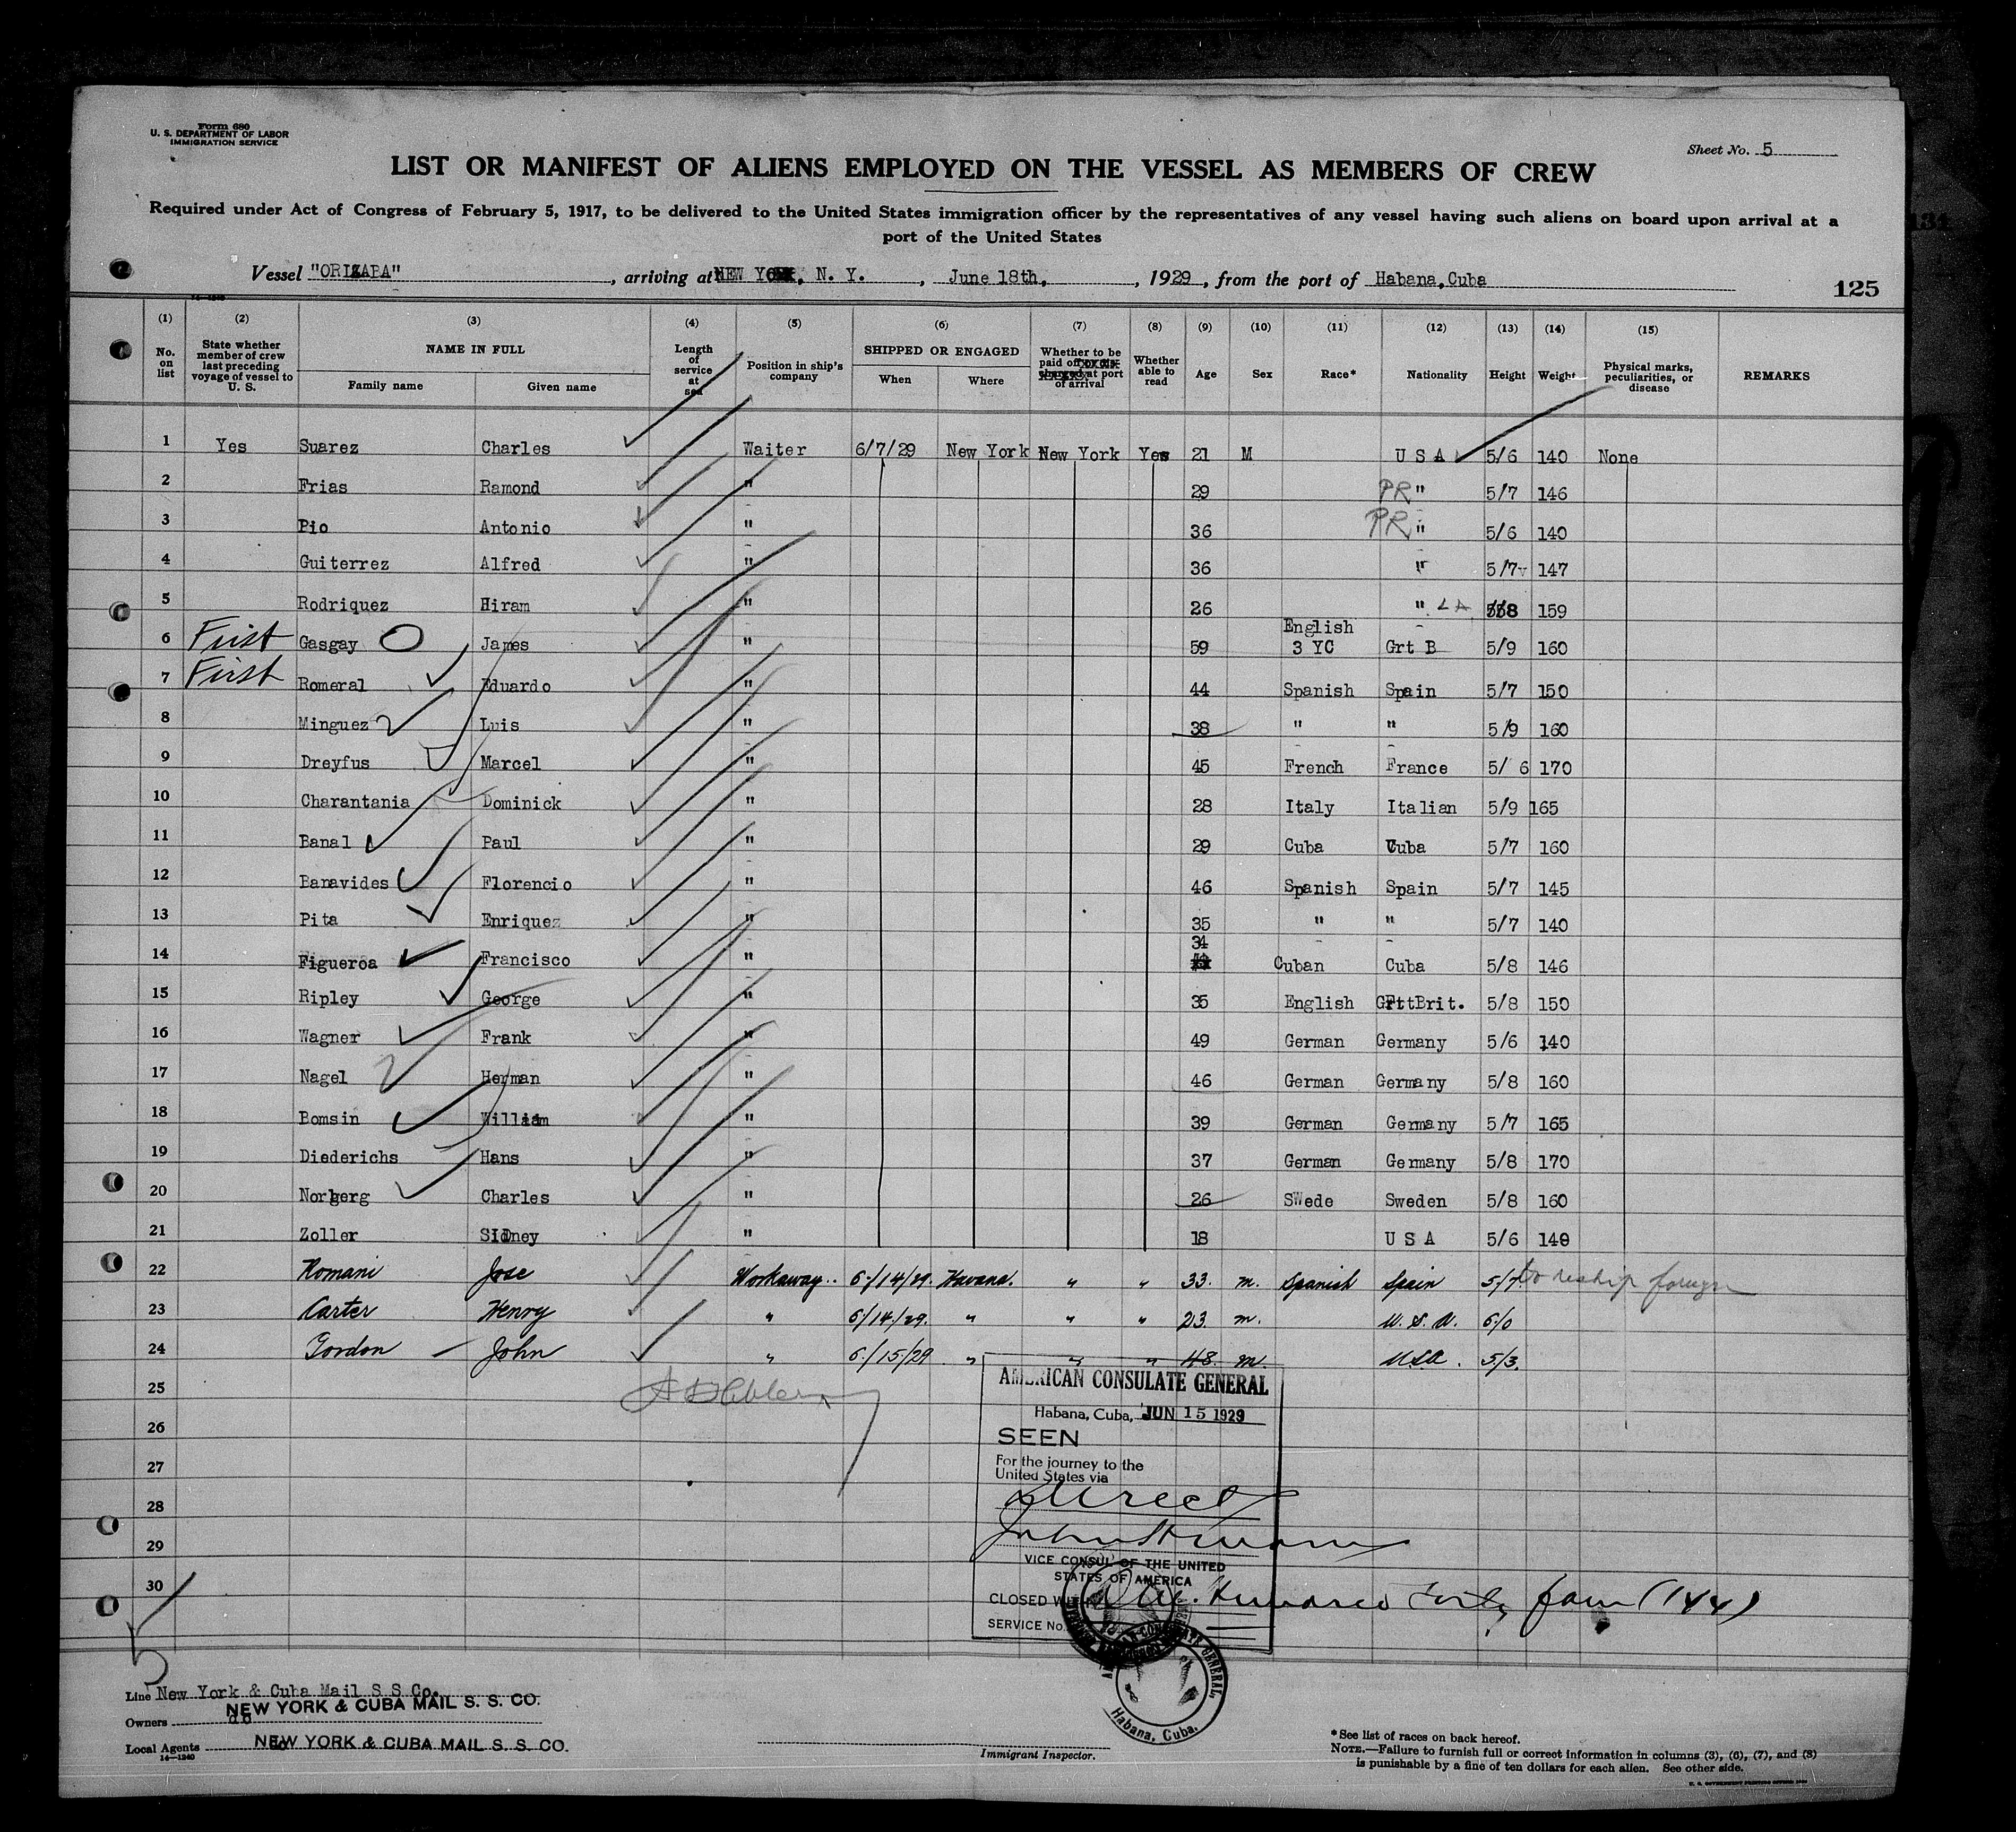 Form 680
U. S. DEPARTMENT OF LABOR
IMMIGRATION SERVICE
Sheet No. 5
LIST OR MANIFEST OF ALIENS EMPLOYED ON THE VESSEL AS MEMBERS OF CREW
Required under Act of Congress of February 5, 1917, to be delivered to the United States immigration officer by the representatives of any vessel having such aliens on board upon arrival at a
port of the United States
Vessel "ORIZABA", arriving at NEW YORK, N. Y., June 18th, 1929, from the port of Habana, Cuba
125
(1) (2) (3) (4) (5) (6) (7) (8) (9) (10) (11) (12) (13) (14) (15)
No. on list
State whether member of crew last preceding voyage of vessel to U. S.
NAME IN FULL
Family name Given name
Length of service at sea
Position in ship's company
SHIPPED OR ENGAGED
When Where
Whether to be paid off or discharged at port of arrival
Whether able to read
Age Sex Race* Nationality Height Weight
Physical marks, peculiarities, or disease
REMARKS
1 Yes Suarez Charles Waiter 6/7/29 New York New York Yes 21 M U S A 5/6 140 None
2 Frias Ramond " 29 PR " 5/7 146
3 Pio Antonio " 36 PR " 5/6 140
4 Guiterrez Alfred " 36 " 5/7 147
5 Rodriquez Hiram " 26 " 5/8 159
6 First Gasgay James " 59 English 3 YC Grt B 5/9 160
7 First Romeral Eduardo " 44 Spanish Spain 5/7 150
8 Minguez Luis " 38 " " 5/9 160
9 Dreyfus Marcel " 45 French France 5/ 6 170
10 Charantania Dominick " 28 Italy Italian 5/9 165
11 Banal Paul " 29 Cuba Cuba 5/7 160
12 Banavides Florencio " 46 Spanish Spain 5/7 145
13 Pita Enriquez " 35 " " 5/7 140
14 Figueroa Francisco " 34 Cuban Cuba 5/8 146
15 Ripley George " 35 English GrttBrit. 5/8 150
16 Wagner Frank " 49 German Germany 5/6 140
17 Nagel Herman " 46 German Germany 5/8 160
18 Bomsin William " 39 German Germany 5/7 165
19 Diederichs Hans " 37 German Germany 5/8 170
20 Norberg Charles " 26 SWede Sweden 5/8 160
21 Zoller SIDney " 18 U S A 5/6 140
22 Romani Jose Workaway 6/14/29. Havana. " " 33. m. Spanish Spain 5/7 to reship foreign
23 Carter Henry " 6/14/29. " " " 23. m. U. S. A. 6/0
24 Gordon John " 6/15/29 " " " 48. m. USA. 5/3.
25
26
27
28
29
30
AMERICAN CONSULATE GENERAL
Habana, Cuba, JUN 15 1929
SEEN
For the journey to the
United States via
direct
VICE CONSUL OF THE UNITED
STATES OF AMERICA
CLOSED WITH One Hundred Forty four (144)
SERVICE No.
AMERICAN CONSULATE GENERAL, Habana, Cuba.
Line New York & Cuba Mail S S Co.
Owners do NEW YORK & CUBA MAIL S. S. CO.
Local Agents do NEW YORK & CUBA MAIL S. S. CO.
14—1240
Immigrant Inspector.
*See list of races on back hereof.
NOTE.—Failure to furnish full or correct information in columns (3), (6), (7), and (8)
is punishable by a fine of ten dollars for each alien. See other side.